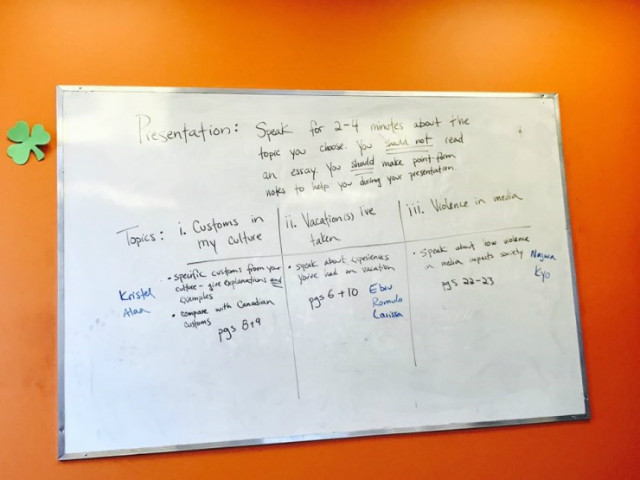 Presentation: Speak for 2-4 minutes about the
topic you choose. You should not read
an essay. You should make point-form
notes to help you during your presentation.
Topics:
i. Customs in
my culture
• specific customs from your
culture - give explanations and
examples
• compare with Canadian
customs
pgs 8+9
Kristel
Alan
ii. Vacation(s) I've
taken
• speak about experiences
you've had on vacation
pgs 6 + 10
Ebru
Romulo
Larissa
iii. Violence in media
• speak about how violence
in media impacts society
pgs 22-23
Kyo